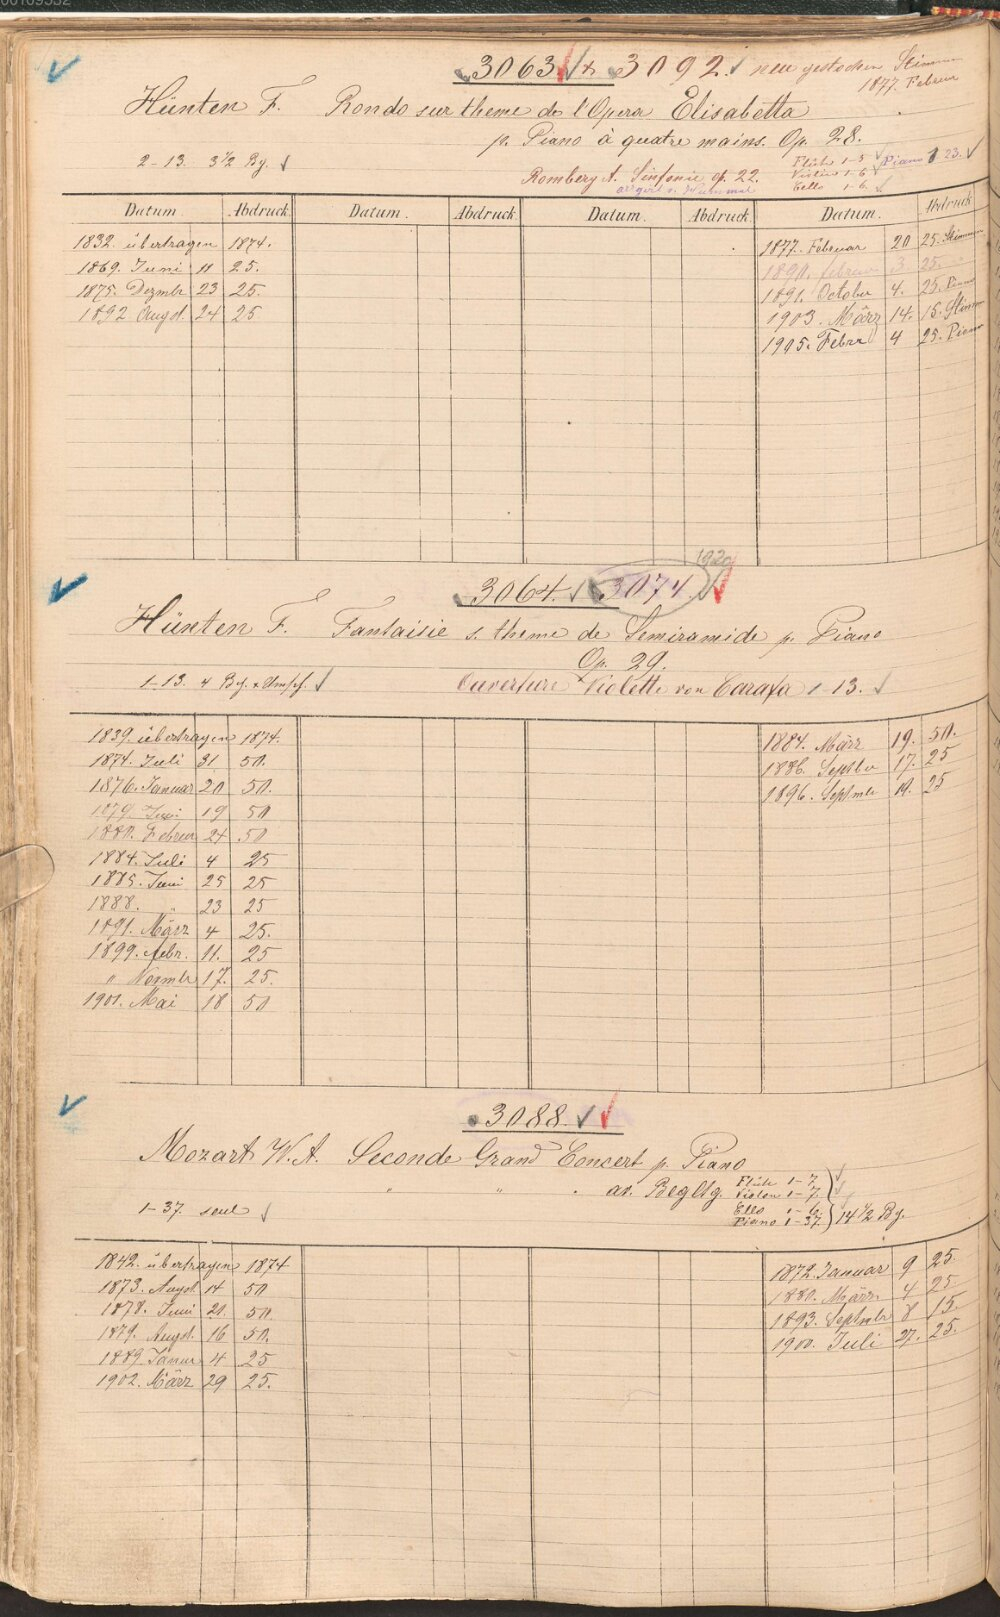 00109532
3063 & 3092. neu gestochen Stimmen
1877. Februar
Hünten F. Rondo sur theme de l'Opera Elisabetta
p. Piano à quatre mains. Op. 28.
2-13. 3½ Bg.
Romberg A. Sinfonie op. 22.
Flûte 1-5 Piano 1 23.
Violin 1-6
Cello 1-6.
Datum Abdruck Datum. Abdruck Datum. Abdruck Datum. Abdruck
1832. übertragen 1874.
1869. Juni 11 25.
1875. Dezmbr 23 25.
1892 Augst. 24 25
1877. Februar 20 25. Stimmen
1890. februar 3. 25.
1891. October 4. 25. Piano
1903. März 14. 15. Stimm
1905. Febr 4 25. Piano
1920
3064. 3074.
Hünten F. Fantaisie s. theme de Semiramide p. Piano
Op. 29.
1-13. 4 Bg. + Umschl.
Ouverture Violette von Carafa 1-13.
1839. übertragen 1874.
1874. Juli 31 50.
1876. Januar 20 50.
1879. Juni 19 50
1880. Februar 24 50
1884. Juli 4 25
1885. Juni 25 25
1888. " 23 25
1891. März 4 25.
1899. febr. 11. 25
" Novmbr 17. 25.
1901. Mai 18 50
1884. März 19. 50.
1886. Septbr 17. 25
1896. Septmbr 19. 25
3088.
Mozart W. A. Seconde Grand Concert p. Piano
" " . av. Begltg.
Flûte 1-7
Violon 1-7.
Cello 1-6.
Piano 1-37. 14½ Bg.
1-37 seul
1842. übertragen 1874
1873. Augst 14 50
1878. Juni 21. 50.
1879. Augst. 16 50.
1889. Januar 4 25
1902. März 29 25.
1872. Januar 9 25.
1880. März 4 25.
1893. Septmbr 8 15.
1900. Juli 27. 25.